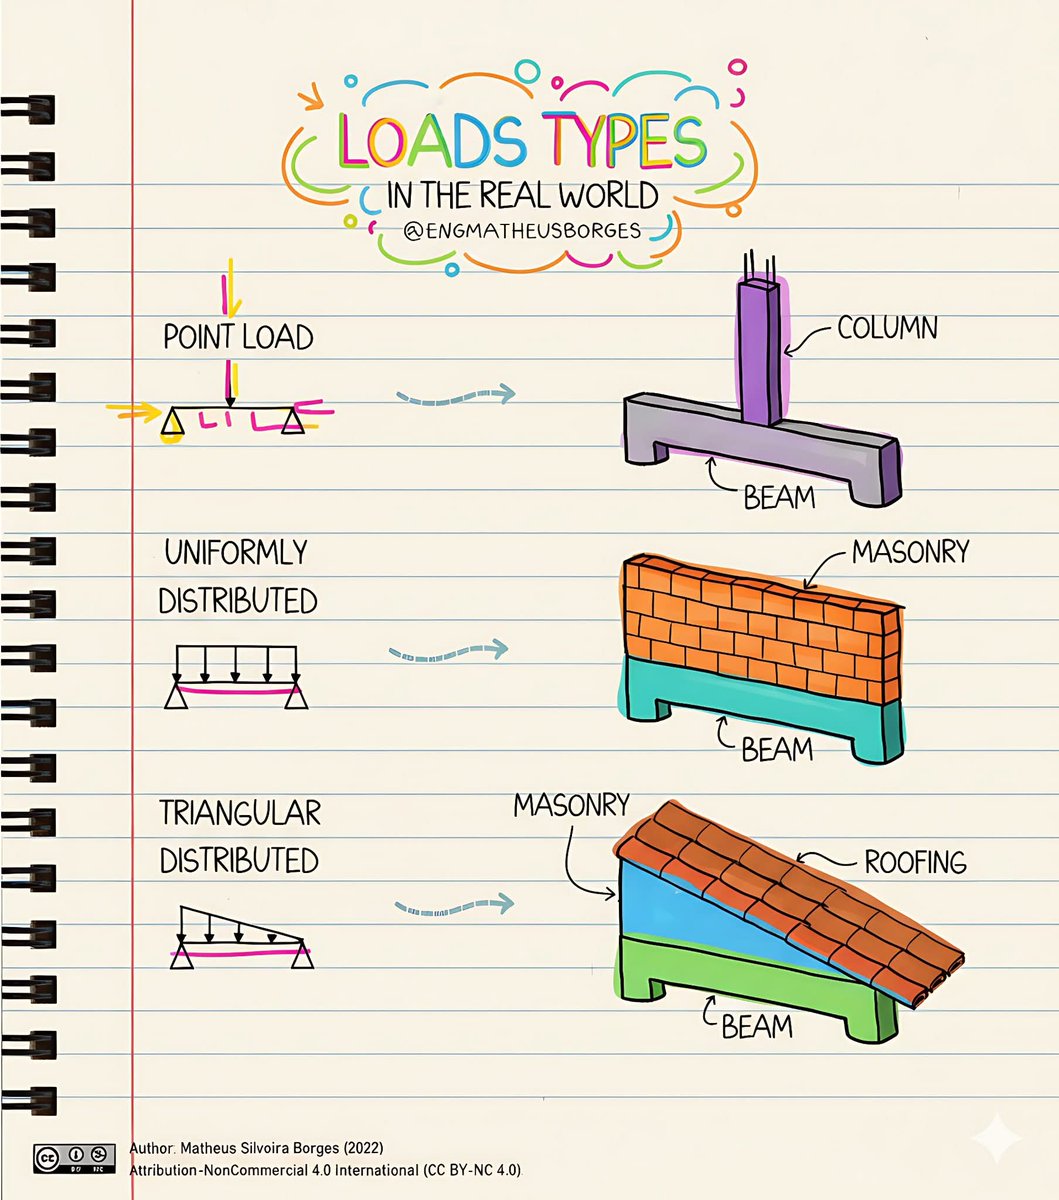 LOADS TYPES
IN THE REAL WORLD
@ENGMATHEUSBORGES
POINT LOAD
COLUMN
BEAM
UNIFORMLY
DISTRIBUTED
MASONRY
BEAM
TRIANGULAR
DISTRIBUTED
MASONRY
ROOFING
BEAM
cc
Author: Matheus Silvoira Borges (2022)
Attribution-NonCommercial 4.0 International (CC BY-NC 4.0)